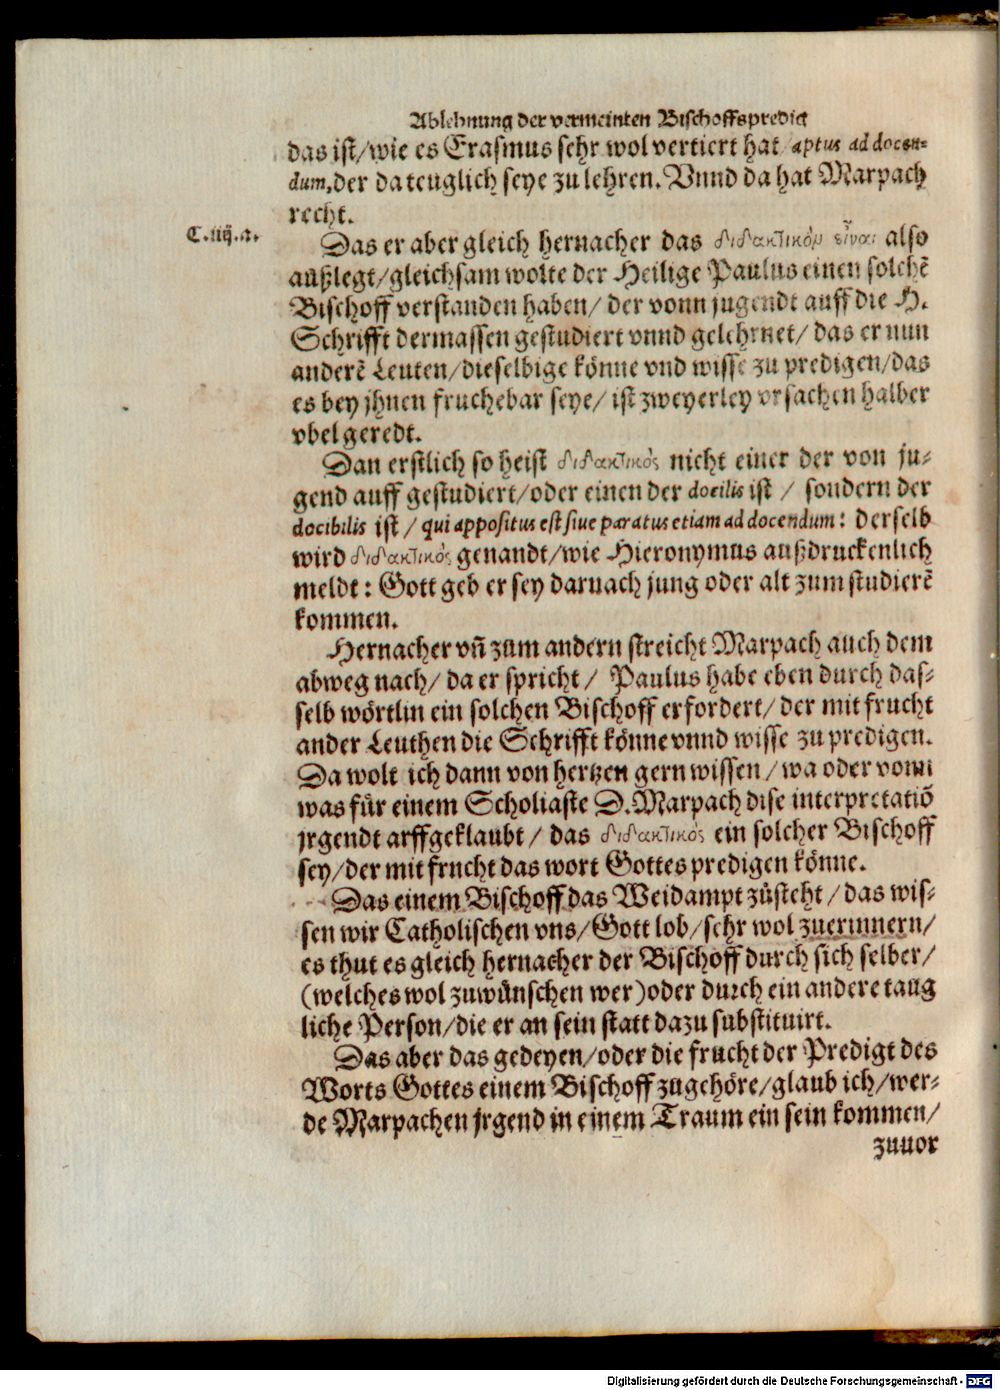 Ablehnung der vermeinten Bischoffspredig
das ist/wie es Erasmus sehr wol vertiert hat/aptus ad docen-
dum, der da teuglich seye zu lehren. Vnnd da hat Marpach
recht.
C.iiij.a.
Das er aber gleich hernacher das διδακτικὸν εἶναι also
außlegt/gleichsam wolte der Heilige Paulus einen solchē
Bischoff verstanden haben/ der vonn jugendt auff die H.
Schrifft dermassen gestudiert vnnd gelehrnet/ das er nun
anderē Leuten/dieselbige könne vnd wisse zu predigen/das
es bey jhnen fruchebar seye/ ist zweyerley vrsachen halber
vbel geredt.
Dan erstlich so heist διδακτικὸς nicht einer der von ju-
gend auff gestudiert/oder einen der docilis ist / sondern der
docibilis ist / qui appositus est siue paratus etiam ad docendum: derselb
wird διδακτικὸς genandt/wie Hieronymus außdruckenlich
meldt: Gott geb er sey darnach jung oder alt zum studierē
kommen.
Hernacher vñ zum andern streicht Marpach auch dem
abweg nach/ da er spricht / Paulus habe eben durch das-
selb wörtlin ein solchen Bischoff erfordert/ der mit frucht
ander Leuthen die Schrifft könne vnnd wisse zu predigen.
Da wolt ich dann von hertzen gern wissen / wa oder vonn
was für einem Scholiaste D. Marpach dise interpretatiō
jrgendt arffgeklaubt / das διδακτικὸς ein solcher Bischoff
sey/der mit frucht das wort Gottes predigen könne.
Das einem Bischoff das Weidampt zůsteht / das wis-
sen wir Catholischen vns/Gott lob/sehr wol zuerinnern/
es thut es gleich hernacher der Bischoff durch sich selber/
(welches wol zuwünschen wer)oder durch ein andere taug
liche Person/die er an sein statt dazu substituirt.
Das aber das gedeyen/oder die frucht der Predigt des
Worts Gottes einem Bischoff zugehöre/glaub ich/wer-
de Marpachen jrgend in einem Traum ein sein kommen/
zuuor
Digitalisierung gefördert durch die Deutsche Forschungsgemeinschaft - DFG